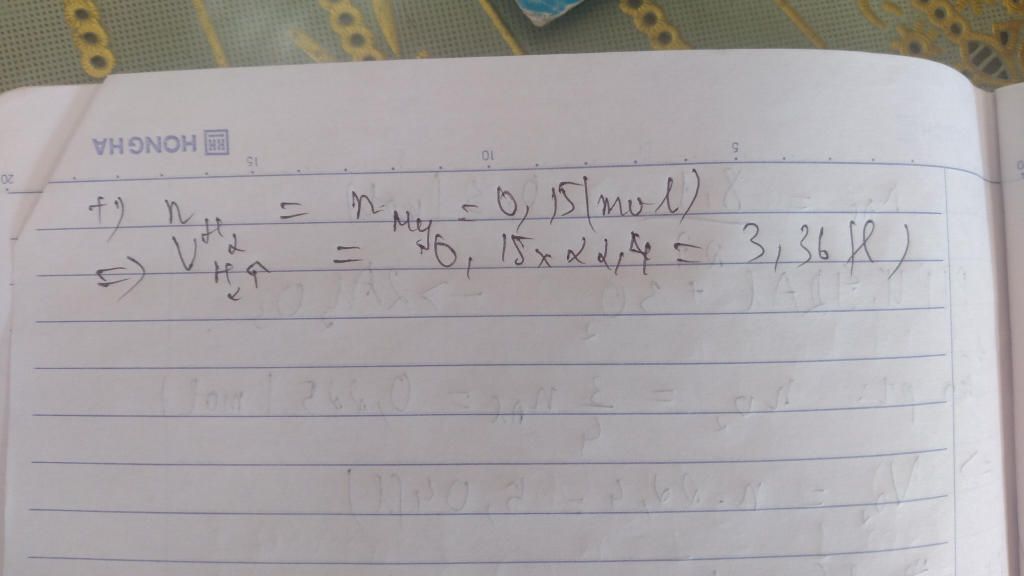 HONG HA
20 15 10 5
+) n H2 = n Mg = 0,15 (mol)
=) V H2↑ = 0,15 x 22,4 = 3,36 (l)